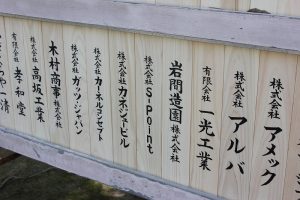 株式会社 アメック
株式会社 アルバ
有限会社 一光工業
岩間造園株式会社
株式会社 S-Point
株式会社 カネジュービル
株式会社 カーネルコンセプト
株式会社 ガッツ・ジャパン
木村商事株式会社
株式会社 高坂工業
有限会社 孝和堂